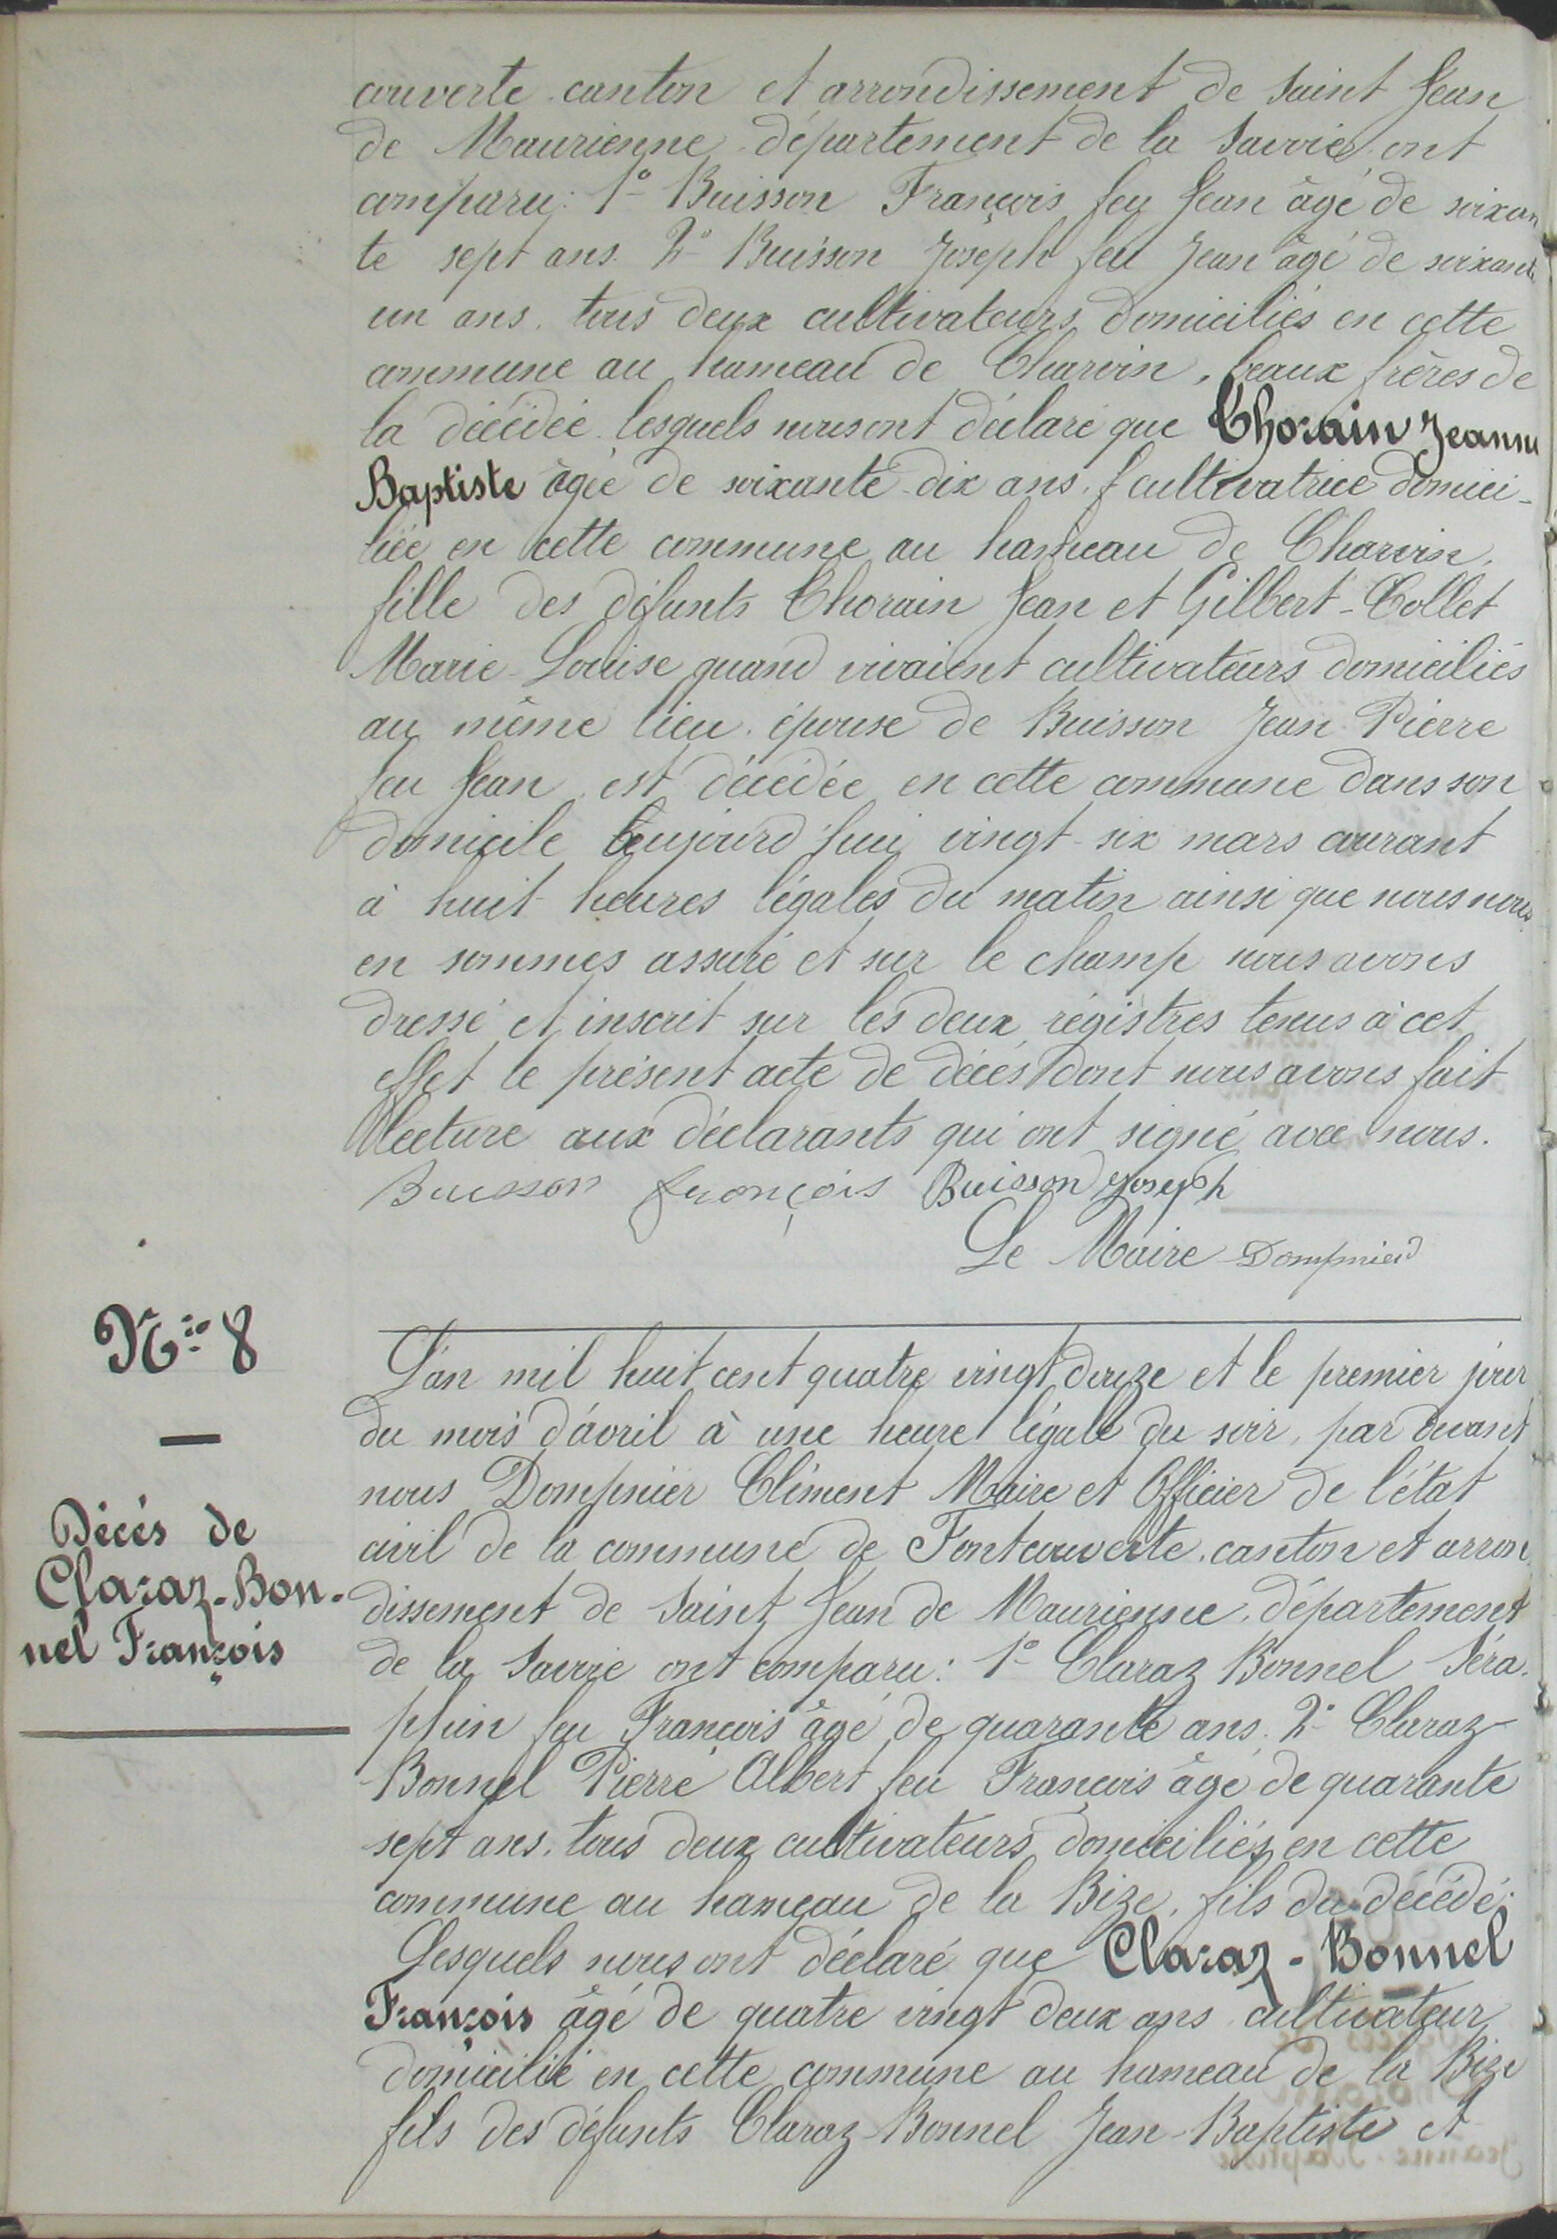 couverte. canton et arrondissement de Saint Jean
de Maurienne, département de la Savoie, ont
comparu: 1° Buisson François feu Jean âgé de soixan
te sept ans. 2° Buisson Joseph feu Jean âgé de soixante
un ans. tous deux cultivateurs domiciliés en cette
commune au hameau de Charvin, beaux frères de
la décédée. lesquels nous ont déclaré que Chorain Jeanne
Baptiste âgée de soixante-dix ans, cultivatrice domici-
liée en cette commune au hameau de Charvin,
fille des défunts Chorain Jean et Gilbert-Collet
Marie-Louise quand vivaient cultivateurs domiciliés
au même lieu. épouse de Buisson Jean Pierre
feu Jean, est décédée en cette commune dans son
domicile aujourd'hui vingt-six mars courant
à huit heures légales du matin ainsi que nous nous
en sommes assuré et sur le champ nous avons
dressé et inscrit sur les deux régistres tenus à cet
effet le présent acte de décés dont nous avons fait
lecture aux déclarants qui ont signé avec nous.
Buisson françois Buisson Joseph
Le Maire Dompnier
N° 8
Décés de
Claraz-Bon-
nel François
L'an mil huit cent quatre vingt douze et le premier jour
du mois d'avril à une heure légale du soir, par devant
nous Dompnier Clément Maire et Officier de l'état
civil de la commune de Fontcouverte. canton et arron
dissement de Saint Jean de Maurienne, département
de la Savoie ont comparu: 1° Claraz Bonnel Séra-
phin feu François âgé de quarante ans. 2° Claraz-
Bonnel Pierre Albert feu François âgé de quarante
sept ans. tous deux cultivateurs domiciliés en cette
commune au hameau de la Bize, fils du décédé.
Lesquels nous ont déclaré que Claraz-Bonnel
François âgé de quatre vingt deux ans cultivateur
domicilié en cette commune au hameau de la Bize
fils des défunts Claraz-Bonnel Jean-Baptiste et